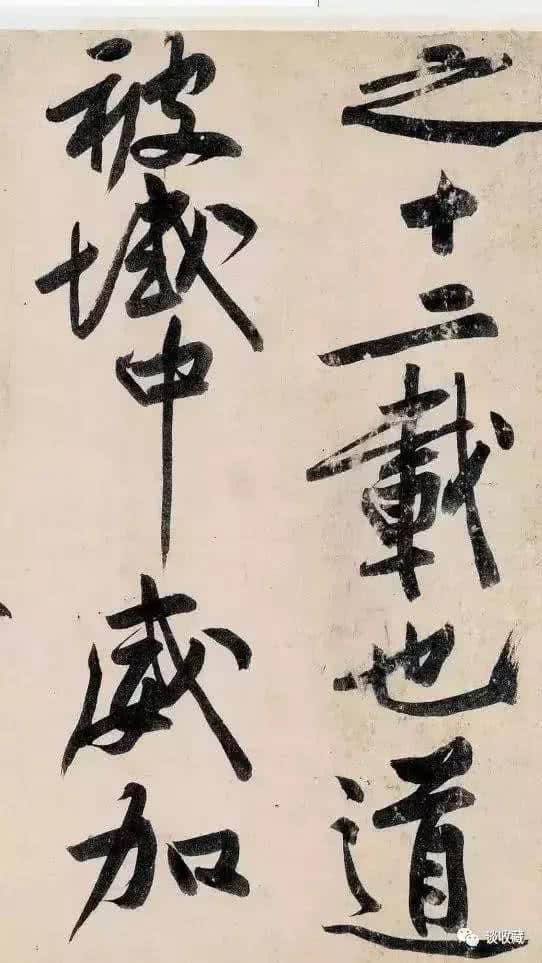 之十二載也道
被域中威加
谈收藏